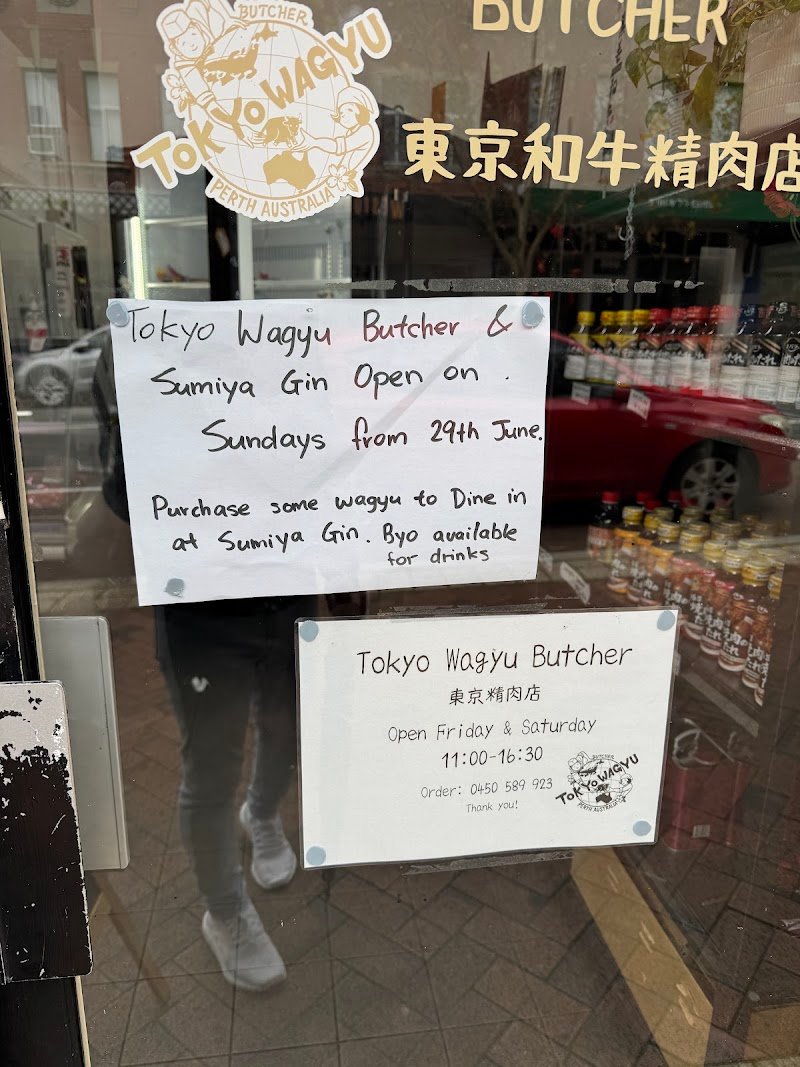 BUTCHER
TOKYO WAGYU
PERTH AUSTRALIA
BUTCHER
東京和牛精肉店
Tokyo Wagyu Butcher &
Sumiya Gin Open on .
Sundays from 29th June.
Purchase some wagyu to Dine in
at Sumiya Gin. Byo available
for drinks
Tokyo Wagyu Butcher
東京精肉店
Open Friday & Saturday
11:00-16:30
Order: 0450 589 923
Thank you!
BUTCHER
TOKYO WAGYU
PERTH AUSTRALIA